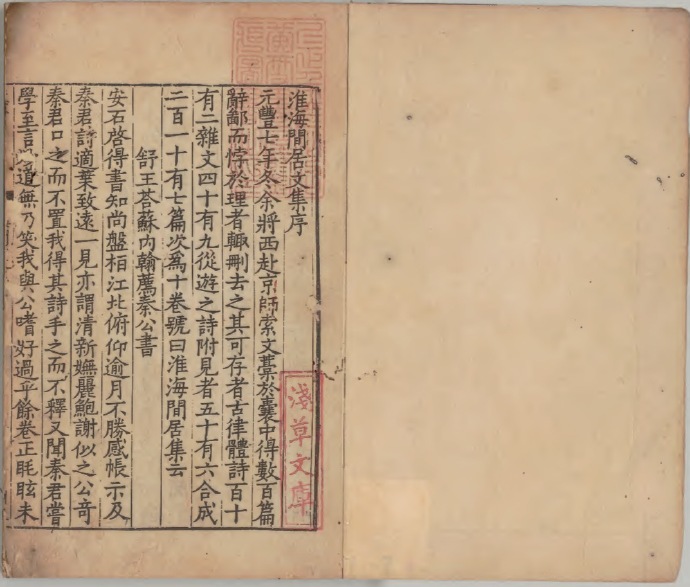 淮海閒居文集序
元豐七年冬余將西赴京師索文藁於囊中得數百篇
辭鄙而悖於理者輒刪去之其可存者古律體詩百十
有二雜文四十有九從遊之詩附見者五十有六合成
二百一十有七篇次為十卷號曰淮海閒居集云
舒王荅蘇內翰薦秦公書
安石啓得書知尚盤桓江北俯仰逾月不勝感悵示及
秦君詩適葉致遠一見亦謂清新嫵麗鮑謝似之公奇
秦君口之而不置我得其詩手之而不釋又聞秦君嘗
學至言道無乃笑我與公嗜好過乎餘卷正眊眩未
淺草文庫